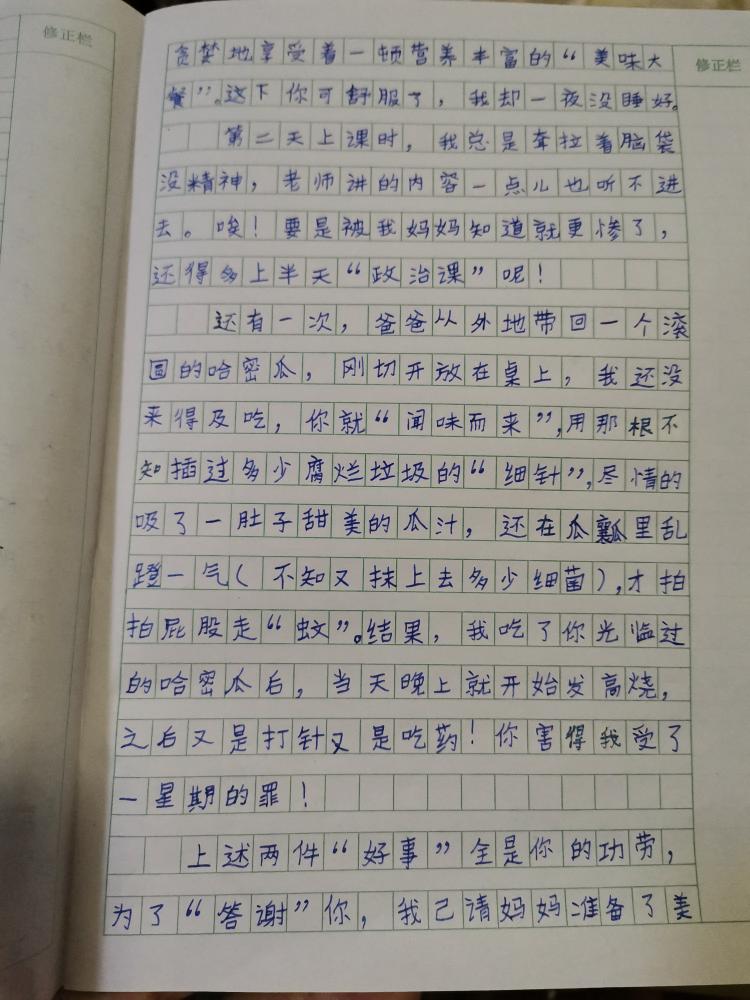 修正栏
贪婪地享受着一顿营养丰富的“美味大
餐”。这下你可舒服了，我却一夜没睡好。
第二天上课时，我总是耷拉着脑袋
没精神，老师讲的内容一点儿也听不进
去。唉！要是被我妈妈知道就更惨了，
还得多上半天“政治课”呢！
还有一次，爸爸从外地带回一个滚
圆的哈密瓜，刚切开放在桌上，我还没
来得及吃，你就“闻味而来”，用那根不
知插过多少腐烂垃圾的“细针”，尽情的
吸了一肚子甜美的瓜汁，还在瓜瓤里乱
蹬一气（不知又抹上去多少细菌），才拍
拍屁股走“蚊”。结果，我吃了你光临过
的哈密瓜后，当天晚上就开始发高烧，
之后又是打针又是吃药！你害得我受了
一星期的罪！
上述两件“好事”全是你的功劳，
为了“答谢”你，我已请妈妈准备了美
修正栏